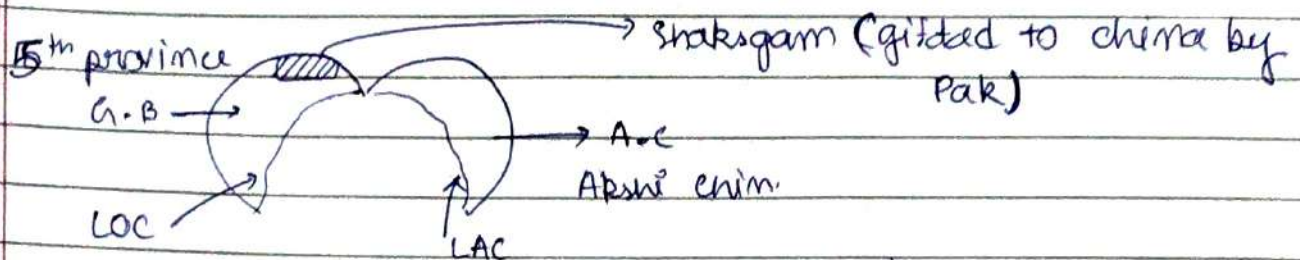 5th province
Shaksgam (gifded to china by
Pak)
G.B
A.C
Akshi chin.
LOC
LAC